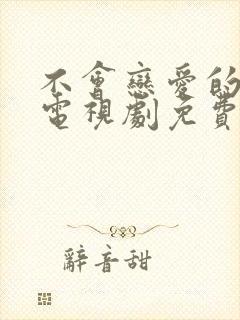 不會戀愛的
電視劇免費
辭音甜